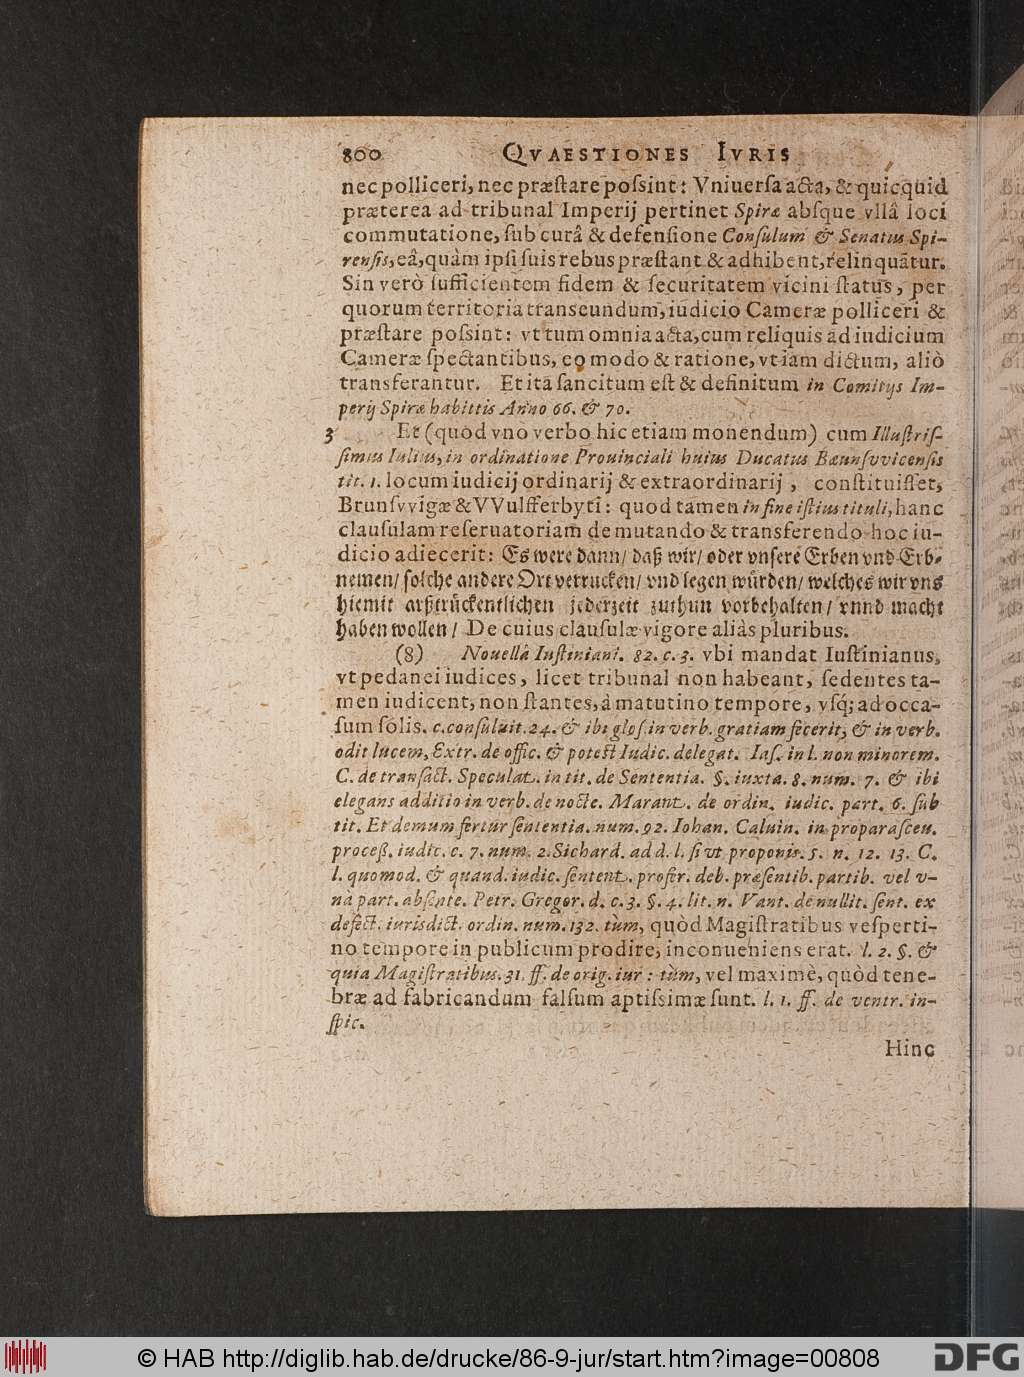 800 QVAESTIONES IVRIS
nec polliceri, nec præſtare poſsint: Vniuerſa acta, & quicquid
præterea ad tribunal Imperij pertinet Spiræ abſque vllâ loci
commutatione, ſub curâ & defenſione Conſulum & Senatus Spi-
renſis, eâ, quàm ipſi ſuis rebus præſtant & adhibent, relinquãtur.
Sin verò ſufficientem fidem & ſecuritatem vicini ſtatus, per
quorum territoria transeundum, iudicio Cameræ polliceri &
præſtare poſsint: vt tum omnia acta, cum reliquis ad iudicium
Cameræ ſpectantibus, eo modo & ratione, vt iam dictum, aliò
transferantur. Et ita ſancitum eſt & definitum in Comitijs Im-
perij Spiræ habittis Anno 66. & 70.
3 Et (quòd vno verbo hic etiam monendum) cum Illuſtriſ-
ſimus Iulius, in ordinatione Prouinciali huius Ducatus Bænnſvvicenſis
tit. 1. locum iudicij ordinarij & extraordinarij, conſtituiſſet,
Brunſvvigæ & VVulfferbyti: quod tamen in fine iſtius tituli, hanc
clauſulam reſeruatoriam de mutando & transferendo hoc iu-
dicio adiecerit: Es were dann/ daß wir/ oder vnſere Erben vnd Erb-
nemen/ ſolche andere Ort verrucken/ vnd legen wuͤrden/ welches wir vns
hiemit außtruͤckentlichen jederzeit zuthun vorbehalten/ vnnd macht
haben wollen/ De cuius clauſulæ vigore aliàs pluribus.
(8) Nouellâ Iuſtiniani. 82. c. 3. vbi mandat Iuſtinianus,
vt pedanei iudices, licet tribunal non habeant, ſedentes ta-
men iudicent, non ſtantes, à matutino tempore, vſq́; ad occa-
ſum ſolis. c. conſuluit. 24. & ibi gloſ. in verb. gratiam fecerit, & in verb.
odit lucem, Extr. de offic. & poteſt Iudic. delegat. Iaſ. in l. non minorem.
C. de tranſact. Speculat. in tit. de Sententia. §. iuxta. 8. num. 7. & ibi
elegans additio in verb. de nocte. Marant. de ordin. iudic. part. 6. ſub
tit. Et demum fertur ſententia. num. 92. Iohan. Caluin. in proparaſceu.
proceß. iudic. c. 7. num. 2. Sichard. ad d. l. ſi vt proponis. 5. n. 12. 13. C.
l. quomod. & quand. iudic. ſentent. profer. deb. præſentib. partib. vel v-
nà part. abſente. Petr. Gregor. d. c. 3. §. 4. lit. n. Vant. de nullit. ſent. ex
defect. iurisdict. ordin. num. 132. tùm, quòd Magiſtratibus veſperti-
no tempore in publicum prodire, inconueniens erat. l. 2. §. &
quia Magiſtratibus. 31. ff. de orig. iur: tùm, vel maximè, quòd tene-
bræ ad fabricandum falſum aptiſsimæ ſunt. l. 1. ff. de ventr. in-
ſpic.
Hinc
© HAB http://diglib.hab.de/drucke/86-9-jur/start.htm?image=00808
DFG